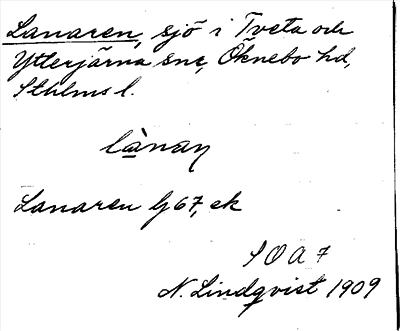 Lanaren, sjö i Tveta och
Ytterjärna snr, Öknebo hd,
Sthlms l.
lànan
Lanaren Gj 67, ek
SOA 7
N. Lindqvist 1909